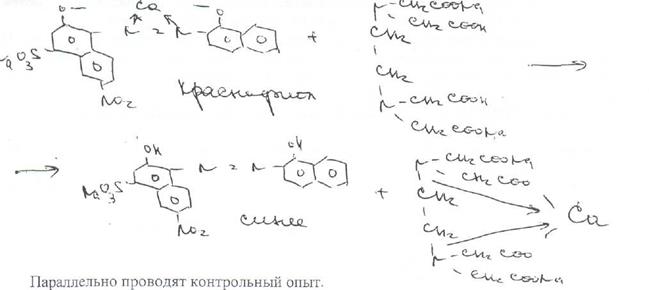 O— Ca —O
N = N +
NaO3S
NO2
Красно-фиол
N—CH2COONa
CH2COOH
CH2
CH2
N—CH2COOH
CH2COONa
OH OH
N = N +
NaO3S
NO2
синее
N—CH2COONa
CH2COO
CH2
CH2
Ca
N—CH2COO
CH2COONa
Параллельно проводят контрольный опыт.